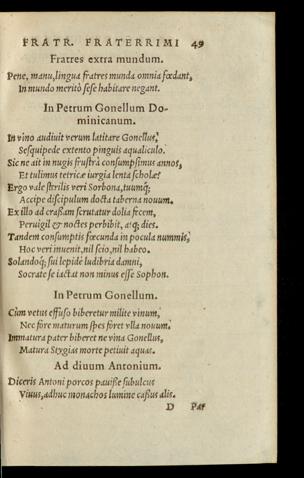 FRATR. FRATERRIMI 49
Fratres extra mundum.
Pene, manu, lingua fratres munda omnia fœdant,
In mundo meritò sese habitare negant.
In Petrum Gonellum Do-
minicanum.
In vino audiuit verum latitare Gonellus,
Sesquipede extento pinguis aqualiculo.
Sic ne ait in nugis frustrà consumpsimus annos,
Et tulimus tetricæ iurgia lenta scholæ?
Ergo vale sterilis veri Sorbona, tuumq;
Accipe discipulum docta taberna nouum.
Ex illo ad crassam scrutatur dolia fæcem,
Peruigil & noctes perbibit, atq; dies.
Tandem consumptis fœcunda in pocula nummis,
Hoc veri inuenit, nil scio, nil habeo.
Solandoq; sui lepidè ludibria damni,
Socrate se iactat non minus esse Sophon.
In Petrum Gonellum.
Cùm vetus effuso biberetur milite vinum,
Nec fore maturum spes foret vlla nouum.
Immatura pater biberet ne vina Gonellus,
Matura Stygias morte petiuit aquas.
Ad diuum Antonium.
Diceris Antoni porcos pauisse subulcus
Viuus, adhuc monachos lumine cassus alis.
D Par